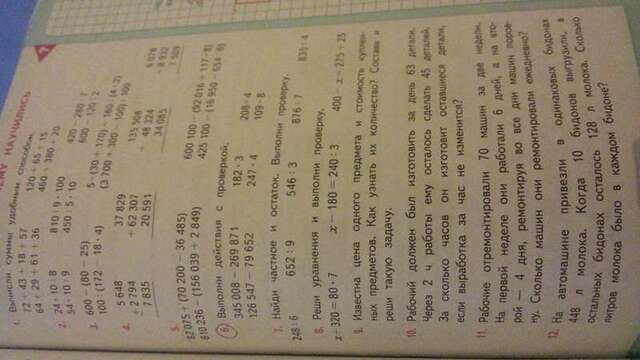 ЧЕМУ НАУЧИЛИСЬ
1. Вычисли суммы удобным способом.
72 + 43 + 18 + 57 120 + 65 + 15
64 + 29 + 61 + 36 460 + 380 + 20
2. 24 · 10 : 8 810 : 9 · 100 420 : 280 : 7
54 · 10 : 9 450 : 5 · 10 600 : 120 : 2
3. 600 − (80 − 25) 5 · (30 + 170) − 160 : (4 · 2)
100 · (172 − 18 · 4) (3 700 + 300 − 100) : 100
4. 5 648 37 829 135 908 6 076
+ 2 794 + 62 307 48 324 8 932
7 835 20 591 34 085 7 509
5. 82 075 + (70 200 − 36 485) 600 100 − (92 016 + 117 · 8)
810 236 − (156 039 + 2 849) 425 100 − (16 950 − 654 · 6)
6. Выполни действия с проверкой.
345 008 − 269 871 182 · 3 208 · 4
126 547 − 79 652 247 · 4 109 · 8
7. Найди частное и остаток. Выполни проверку.
248 : 6 652 : 9 546 : 3 876 : 7 835 : 4
8. Реши уравнения и выполни проверку.
x + 320 = 80 · 7 x − 180 = 240 : 3 400 − x = 275 + 25
9. Известна цена одного предмета и стоимость куплен-
ных предметов. Как узнать их количество? Составь и
реши такую задачу.
10. Рабочий должен был изготовить за день 63 детали.
Через 2 ч работы ему осталось сделать 45 деталей.
За сколько часов он изготовит оставшиеся детали,
если выработка за час не изменится?
11. Рабочие отремонтировали 70 машин за две недели.
На первой неделе они работали 6 дней, а на вто-
рой — 4 дня, ремонтируя во все дни машин поров-
ну. Сколько машин они ремонтировали ежедневно?
12. На автомашине привезли в одинаковых бидонах
448 л молока. Когда 10 бидонов выгрузили, в
остальных бидонах осталось 128 л молока. Сколько
литров молока было в каждом бидоне?